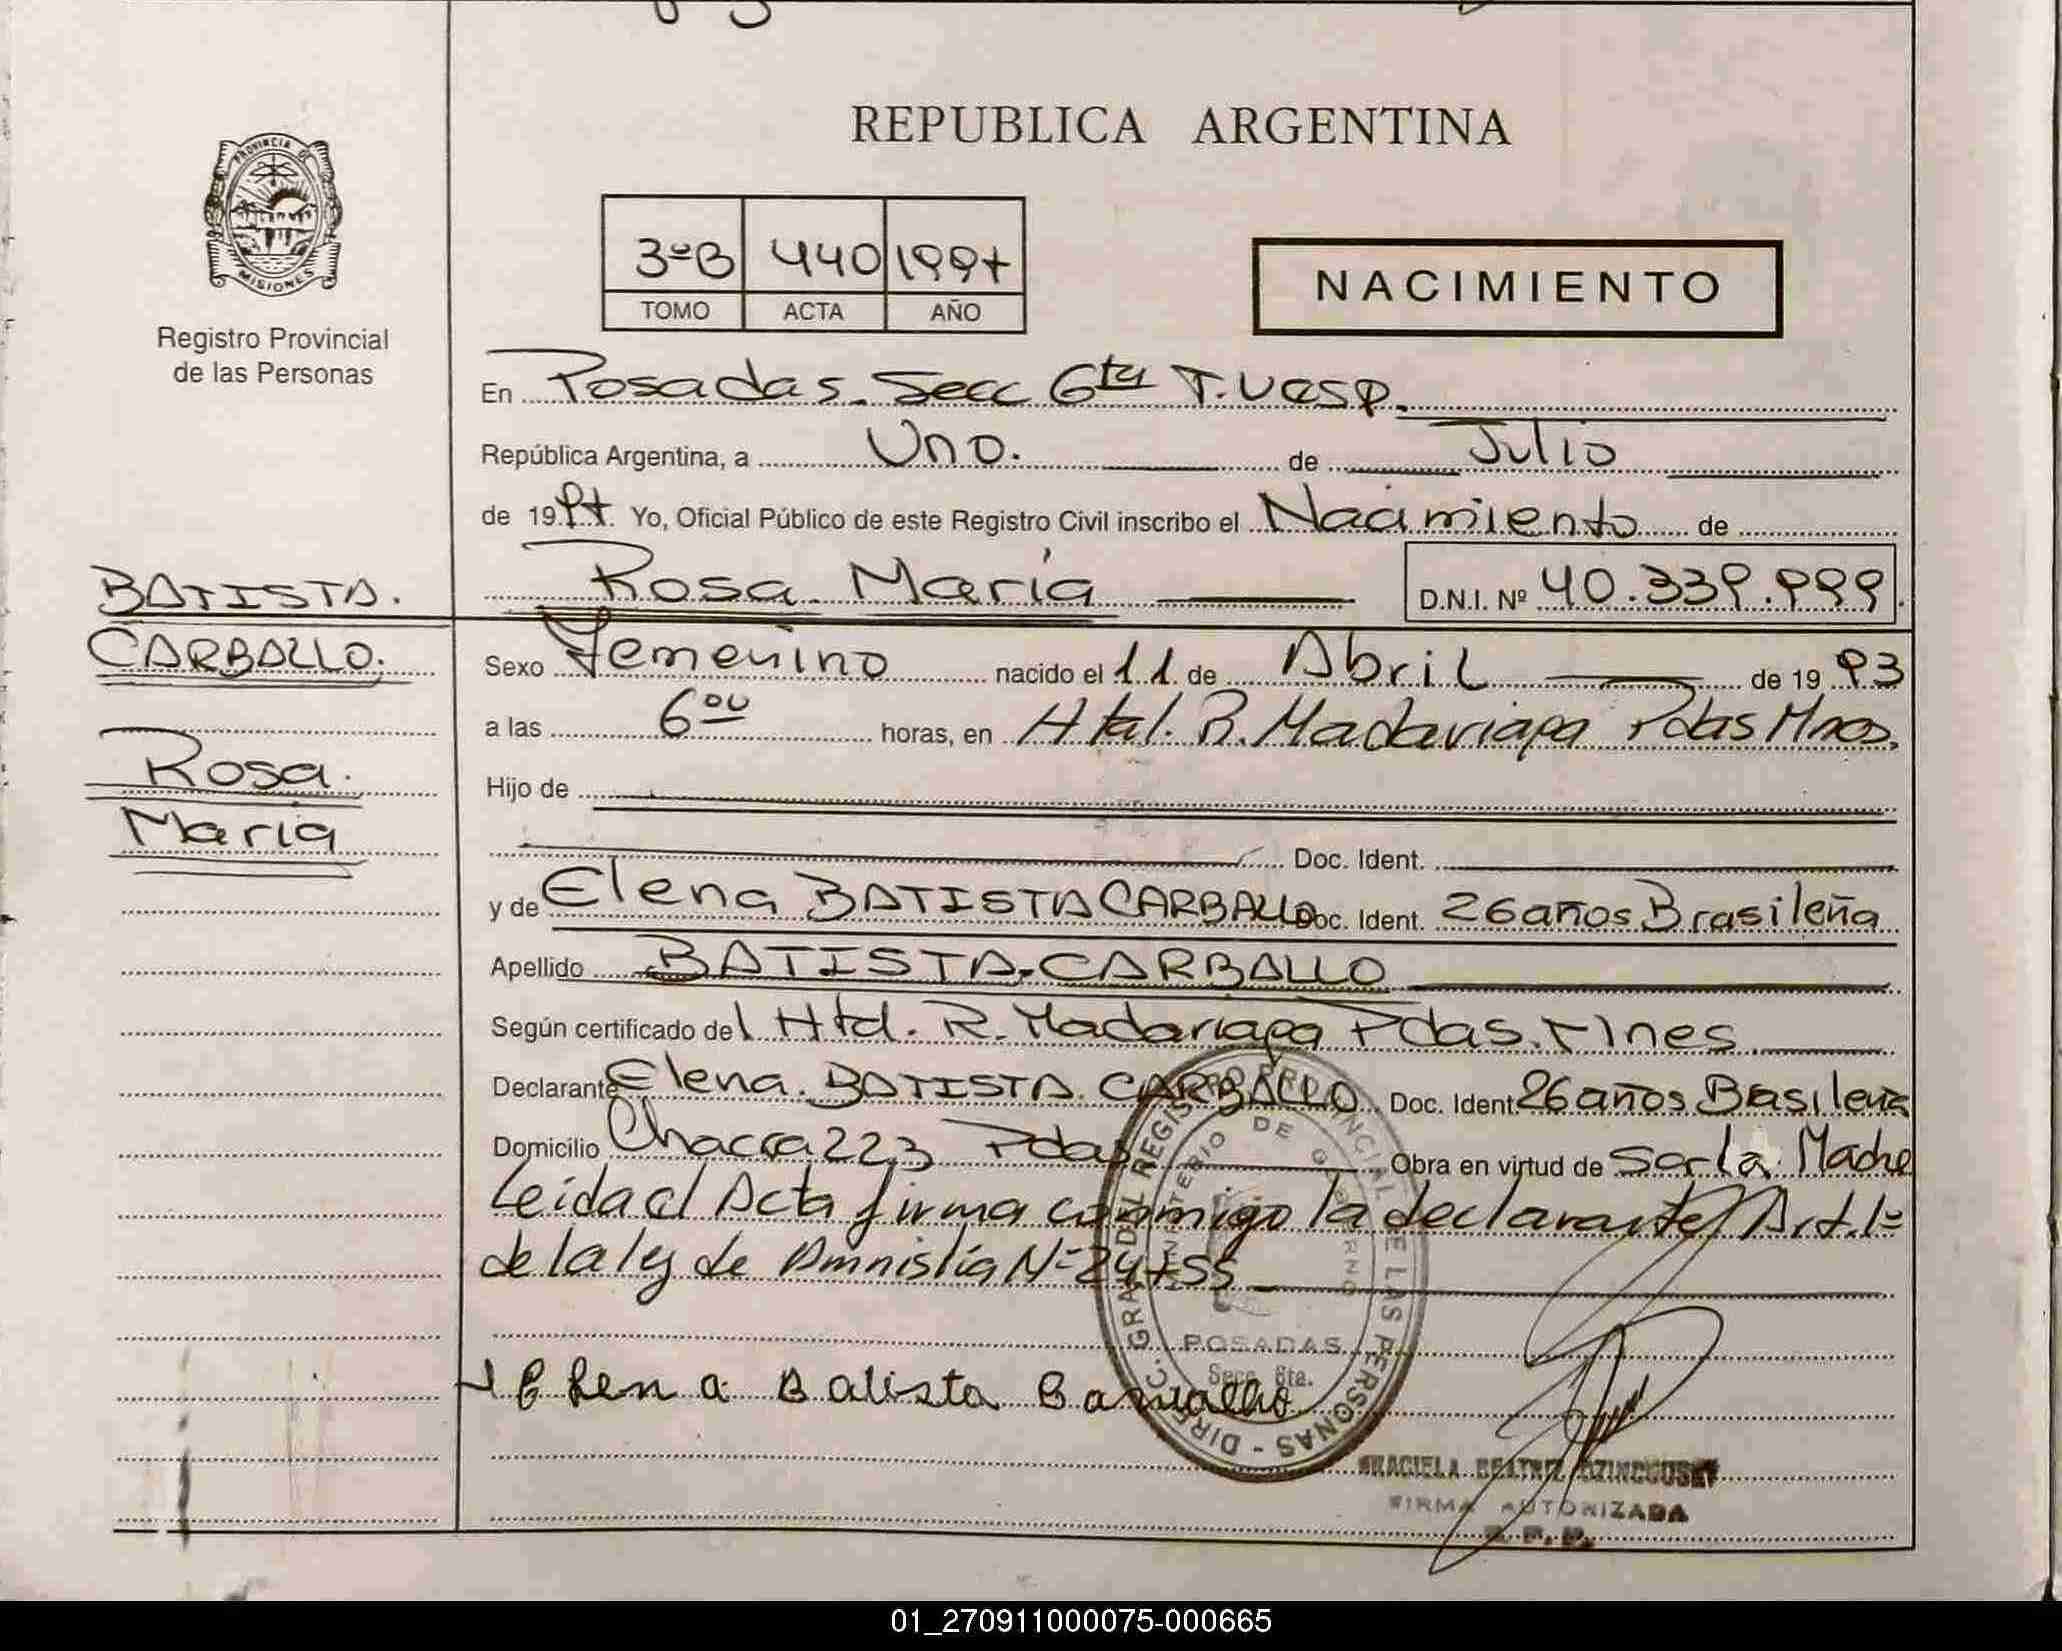 REPUBLICA ARGENTINA
PROVINCIA DE
MISIONES
Registro Provincial
de las Personas
3º B 440 1997
TOMO ACTA AÑO
NACIMIENTO
En Posadas. Secc 6ta T. Vesp.
República Argentina, a Uno. de Julio
de 1997. Yo, Oficial Público de este Registro Civil inscribo el Nacimiento de
Rosa María D.N.I. Nº 40.339.999
BATISTA.
CARBALLO.
Rosa.
María
Sexo Femenino nacido el 11 de Abril de 19 93
a las 6 00 horas, en Htal. R. Madariaga Pdas Mnes.
Hijo de
Doc. Ident.
y de Elena BATISTA CARBALLO Doc. Ident. 26 años Brasileña
Apellido BATISTA-CARBALLO
Según certificado del Htal. R. Madariaga Pdas. Mnes
Declarante Elena. BATISTA CARBALLO Doc. Ident 26 años Brasileña
Domicilio Chacra 223 Pdas Obra en virtud de ser la Madre
Leida el Acta firma conmigo la declarante Art. 1º
de la ley de Amnistía Nº 24755
Elena Batista Carvalho
DIREC. GRAL. DEL REGISTRO PROVINCIAL DE LAS PERSONAS
MINISTERIO DE GOBIERNO
POSADAS
Secc. 6ta.
GRACIELA BEATRIZ
FIRMA AUTORIZADA
01_270911000075-000665